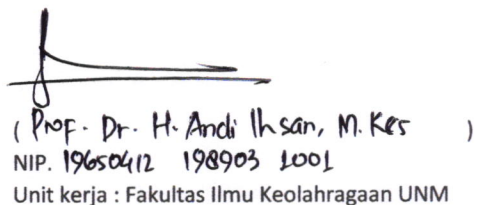 ( Prof. Dr. H. Andi Ihsan, M. Kes )
NIP. 19650412 198903 1001
Unit kerja : Fakultas Ilmu Keolahragaan UNM